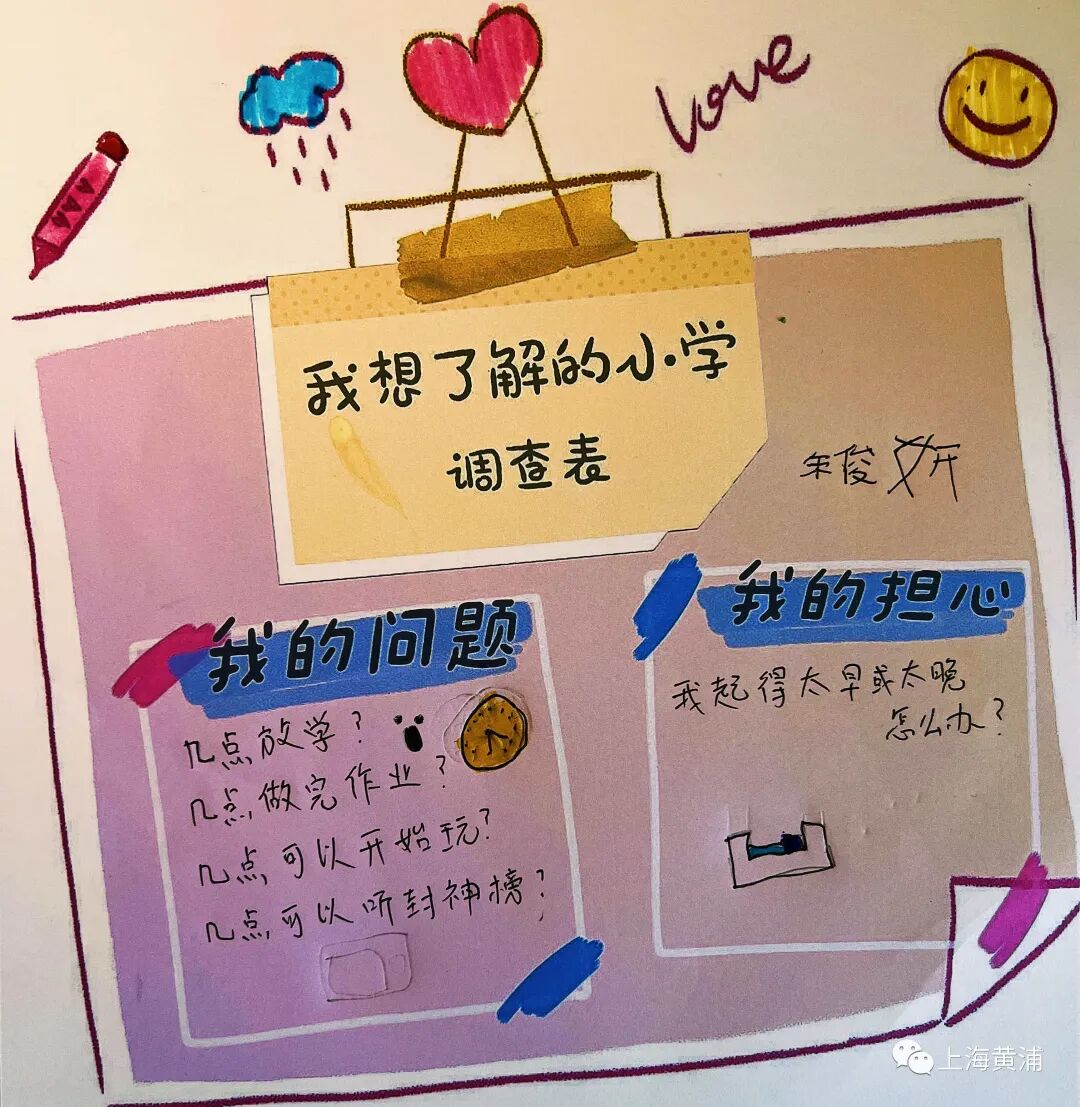 love
我想了解的小学
调查表
朱俊妍
我的问题
几点放学?
几点做完作业?
几点可以开始玩?
几点可以听封神榜?
我的担心
我起得太早或太晚
怎么办?
上海黄浦